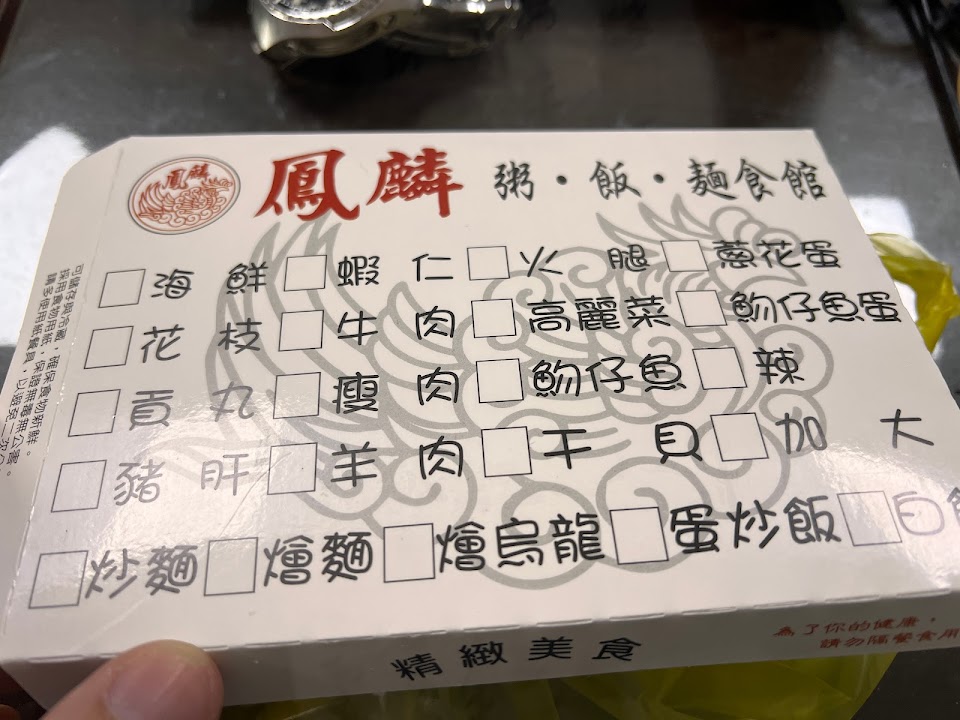 鳳麟
鳳麟 粥・飯・麵食館
海鮮 蝦仁 火腿 蔥花蛋
花枝 牛肉 高麗菜 魩仔魚蛋
貢丸 瘦肉 魩仔魚 辣
豬肝 羊肉 干貝 加大
炒麵 燴麵 燴烏龍 蛋炒飯 白飯
精緻美食
為了你的健康，
請勿隔餐食用
可儲存與冷藏，確保食物新鮮。
採用食物用紙，保證無毒無公害。
請多使用紙餐具，以避免二次公